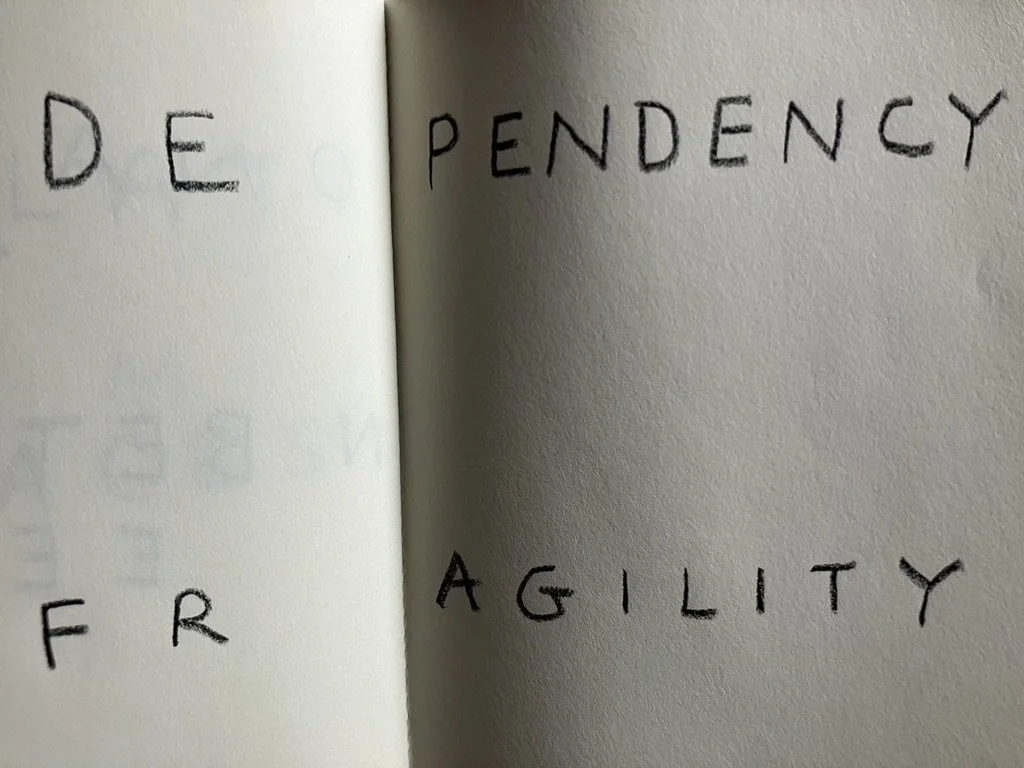 DE PENDENCY
FR AGILITY